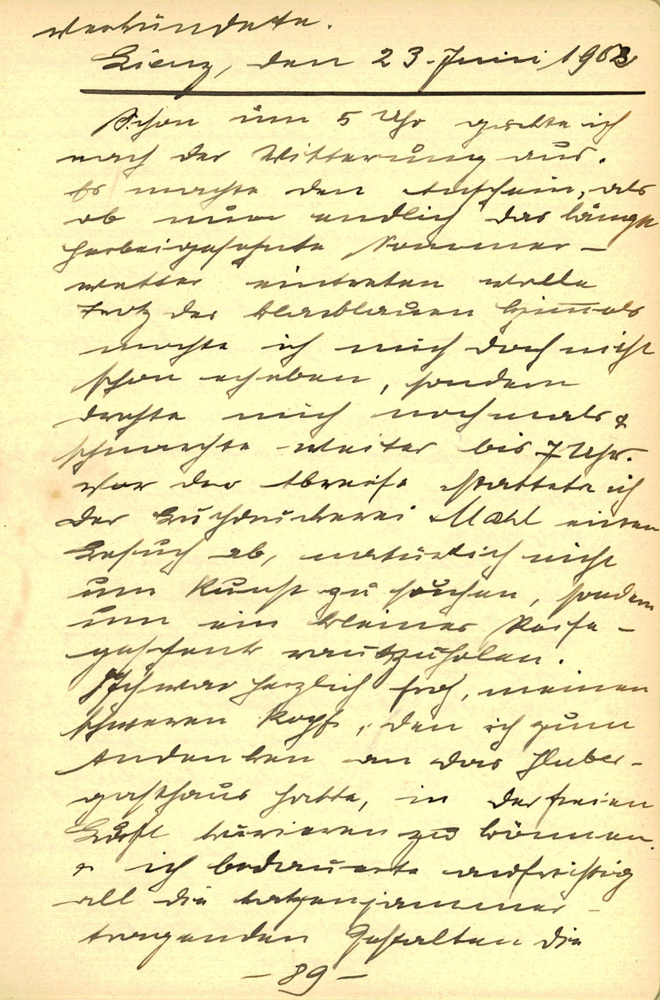 verkündete.
Lienz, den 23. Juni 1903
Schon um 5 Uhr guckte ich
nach der Witterung aus.
Es machte den Anschein, als
ob nun endlich das längst
herbeigesehnte Sommer-
wetter eintreten wolle
Trotz des blaublauen Himmels
mochte ich mich doch nicht
schon erheben, sondern
drehte mich nochmals &
schnarchte weiter bis 7 Uhr.
Vor der Abreise stattete ich
der Buchdruckerei Mahl einen
Besuch ab, natürlich nicht
um Kunst zu suchen, sondern
um ein kleines Reise-
geschenk rauszuholen.
Ich war herzlich froh, meinen
schweren Kopf, den ich zum
Andenken an das
gasthaus hatte, in der freien
Luft kurieren zu können.
& ich bedauerte aufrichtig
all die katzenjammer-
tragenden Gestalten die
- 89 -